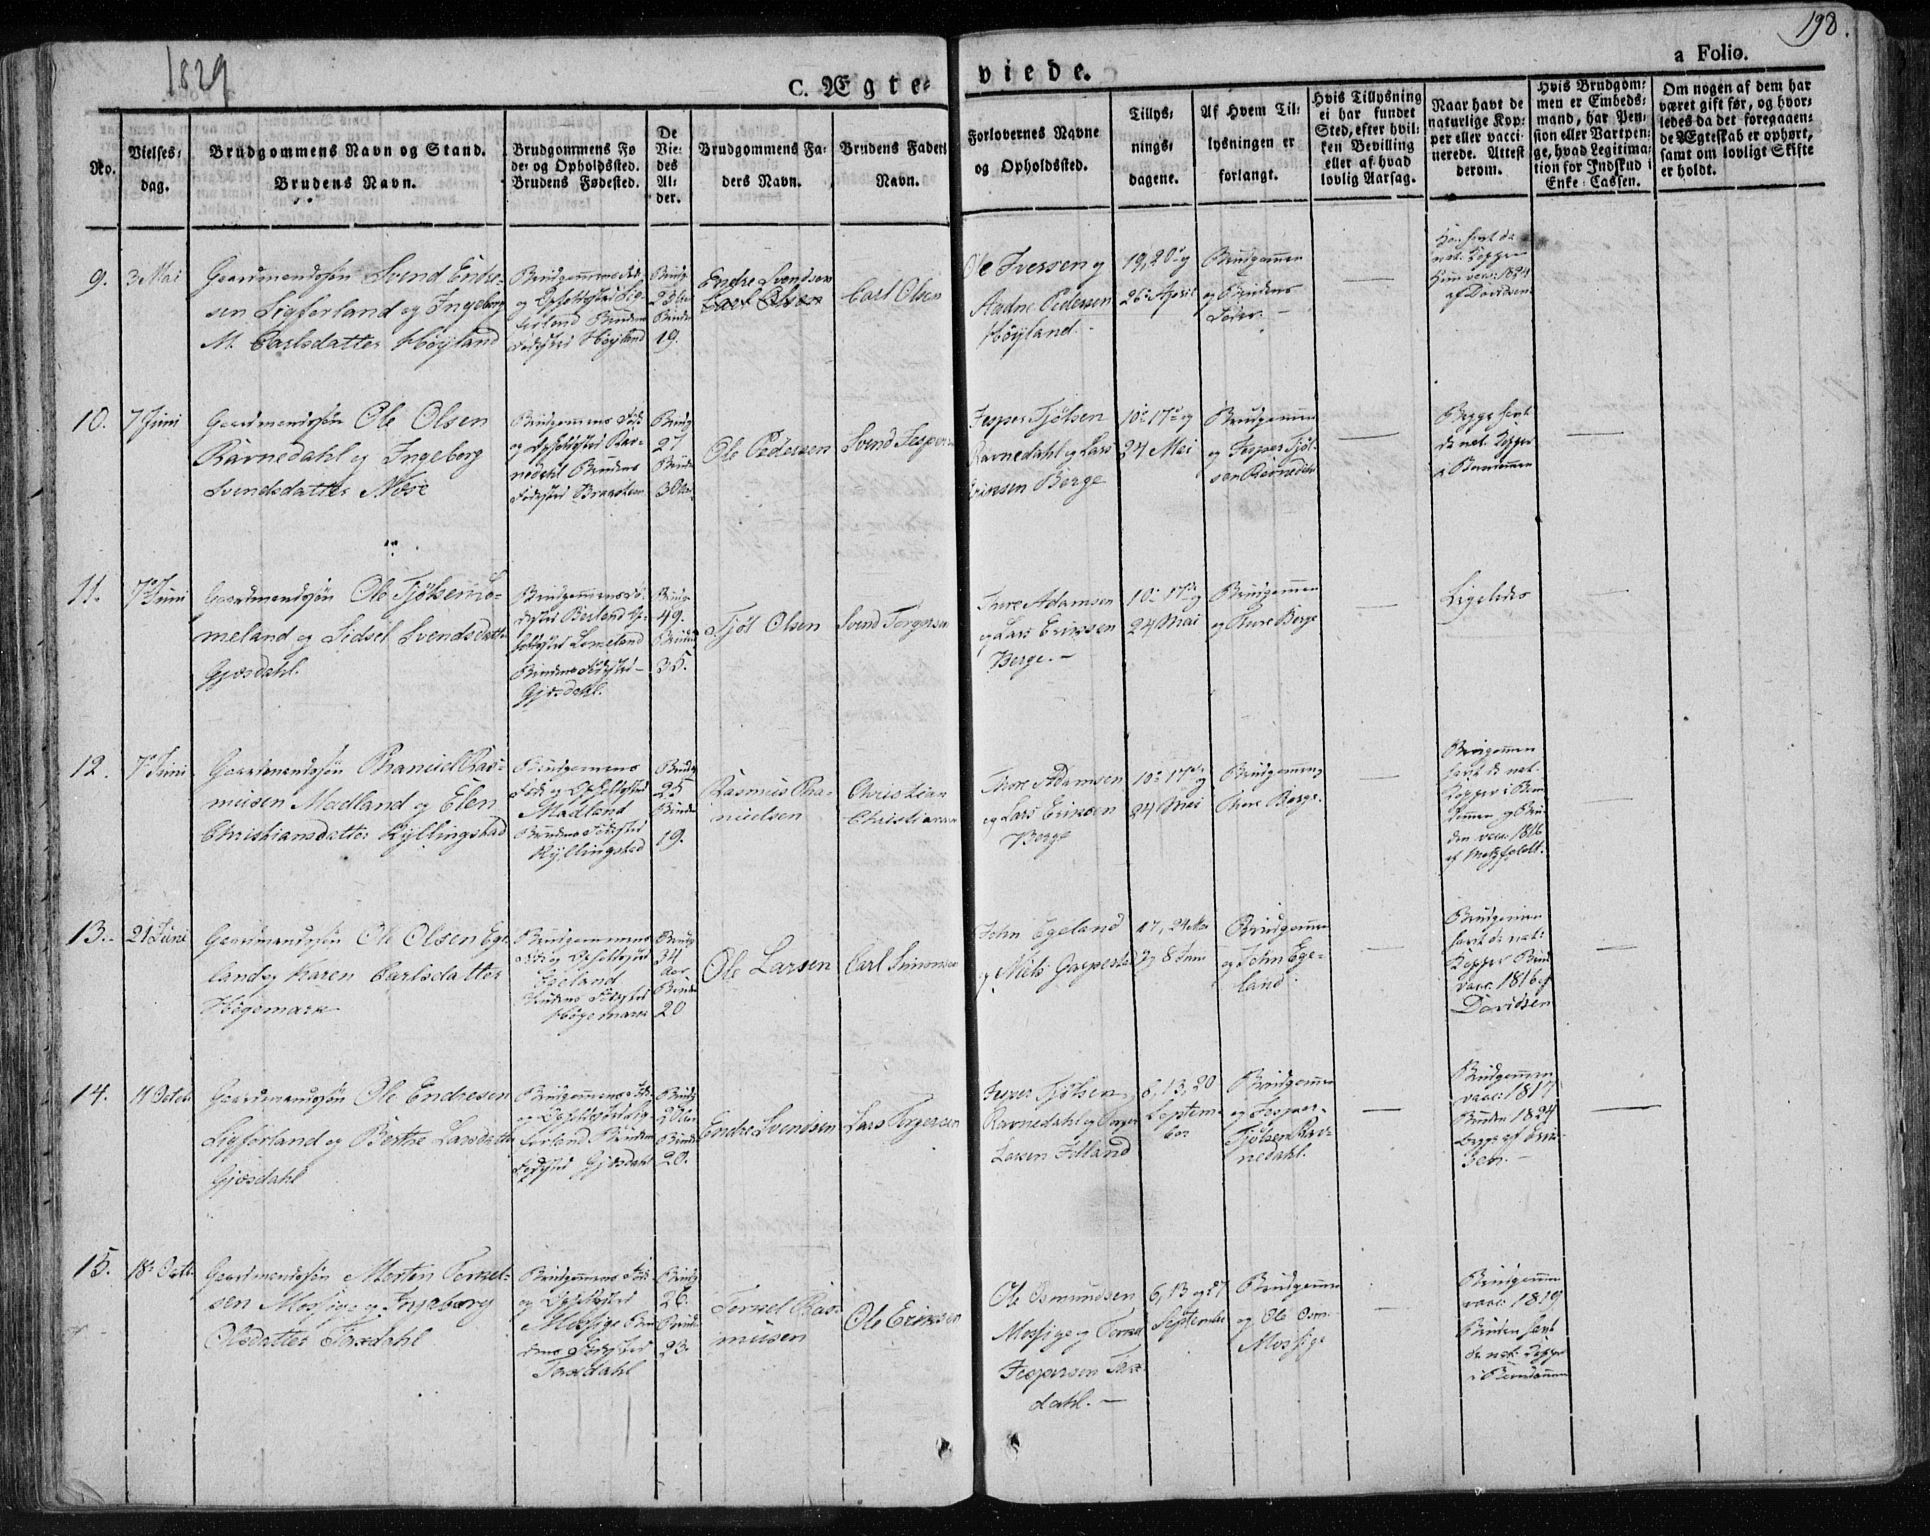 1829
198.
C. Ægte-
viede.
a Folio.
No.
Vielses-
dag.
Brudgommens Navn og Stand.
Brudens Navn.
Brudgommens Fø
de- og Opholdssted.
Brudens Fødested.
De
Vie-
des
Al-
der.
Brudgommens Fa-
ders Navn.
Brudens Faders
Navn.
Forlovernes Navne
og Opholdssted.
Tillys-
nings-
dagene.
Af Hvem Til-
lysningen er
forlangt.
Hvis Tillysning
ei har fundet
Sted, efter hvil-
ken Bevilling
eller af hvad
lovlig Aarsag.
Naar havt de
naturlige Kop-
per eller vacci-
nerede. Attest
derom.
Hvis Brudgom-
men er Embeds-
mand, har Pen-
sion eller Vartpen-
ge, hvad Legitima-
tion for Indskud i
Enke-Cassen.
Om nogen af dem har
været gift før, og hvor-
ledes da det foregaaen-
de Ægteskab er ophørt,
samt om lovligt Skifte
er holdt.
9.
3 Mai
Gaardmandssøn Svend Endre-
sen Sigferland og Ingeborg
M. Carlsdatter Høyland
Brudgommens Føde
og Opholdssted Sig-
ferland Brudens
Fødested Høyland
Brudg
23
Bruden
19.
Endre Svendsen
Carl Olsen
Carl Olsen
Ole Iversen og
Aadne Pedersen
Høyland.
19, 20 og
26 April
Brudgommen
og Brudens
Fader
nat. Kopper
vacc. 1824
af Davidsen
10.
7 Juni
Gaardmandssøn Ole Olsen
Ravnedahl og Ingeborg
Svendsdatter Næse
Brudgommens Føde
og Opholdssted Rav-
nedahl Brudens
Fødested
Brudg
27
Bruden
30
Ole Pedersen
Svend Jespersen
Jesper Tjølsen
Ravnedahl og Lars
Eriksen Berge
10 17 og
24 Mai
Brudgommen
og Jesper Tjøl-
sen Ravnedahl
Begge havt
de nat. Kopper
i Barndommen
11.
7 Juni
Gaardmandssøn Ole Tjølsen Lo-
meland og Sidsel Svendsdatter
Gjæsdahl.
Brudgommens Fø-
dested Birland Op-
holdssted Lomeland
Brudens Fødested
Gjæsdahl.
Brudg
49.
Bruden
35.
Tjøl Olsen
Svend Torgersen
Thore Adamsen
og Lars Eriksen
Berge.
10 17 og
24 Mai
Brudgommen
og Thore Berge
Ligeledes
12.
7 Juni
Gaardmandssøn Thaniel Ras-
musen Madland og Elen
Christiansdatter Kyllingstad
Brudgommens
Føde og Opholdssted
Madland
Brudens Fødested
Kyllingstad
Brudg
25
Bruden
19.
Rasmus Tha-
nielsen
Christian
Christiansen
Thore Adamsen
og Lars Eriksen
Berge
10 17 og
24 Mai
Brudgommen og
Thore Berge.
Brudgommen
havt de nat.
Kopper i Barn-
dommen og Bru-
den vacc. 1816
af Metzfeldt.
13.
21 Juni
Gaardmandssøn Ole Olsen Ege-
land og Karen Carlsdatter
Høgemark
Brudgommens
Føde og Opholdssted
Egeland
Brudens Fødested
Høgemark
Brudg
34
Aar
Bruden
20
Ole Larsen
Carl Simonsen
John Egeland
og Niels
17, 24 Mai
og 8 Juni
Brudgommen
og John Ege-
land.
Brudgommen
havt de nat.
Kopper Brud
vacc. 1816 af
Davidsen
14.
11 Octob.
Gaardmandssøn Ole Endresen
Sigferland og Berthe Larsdatter
Gjæsdahl
Brudgommens Føde
og Opholdssted Sig-
ferland Brudens
Fødested Gjæsdahl
Brudg
Bruden
20.
Endre Svendsen
Lars Torgersen
Jesper Tjølsen
Ravnedahl og Torger
Larsen
6, 13, 20
Septem-
ber
Brudgommen
og Jesper
Tjølsen Rav-
nedahl.
Brudgommen
vacc. 1817
Bruden 1824
begge af David-
sen.
15.
18 Octb.
Gaardmandssøn Morten Torkel-
sen Mossige og Ingeborg
Olsdatter Taxdahl
Brudgommens Føde
og Opholdssted
Mossige Bru-
dens Fødested
Taxdahl
Brudg
26.
Bruden
23.
Torkel Ras-
musen
Ole Eriksen
Ole Osmundsen
Mossige og Torkel
Jespersen Tax-
dahl.
6, 13 og 27
September
Brudgommen
og Ole Osm.
Mossige
Brudgommen
vacc. 1819
Bruden havt
de nat. Kopper
i Barndommen